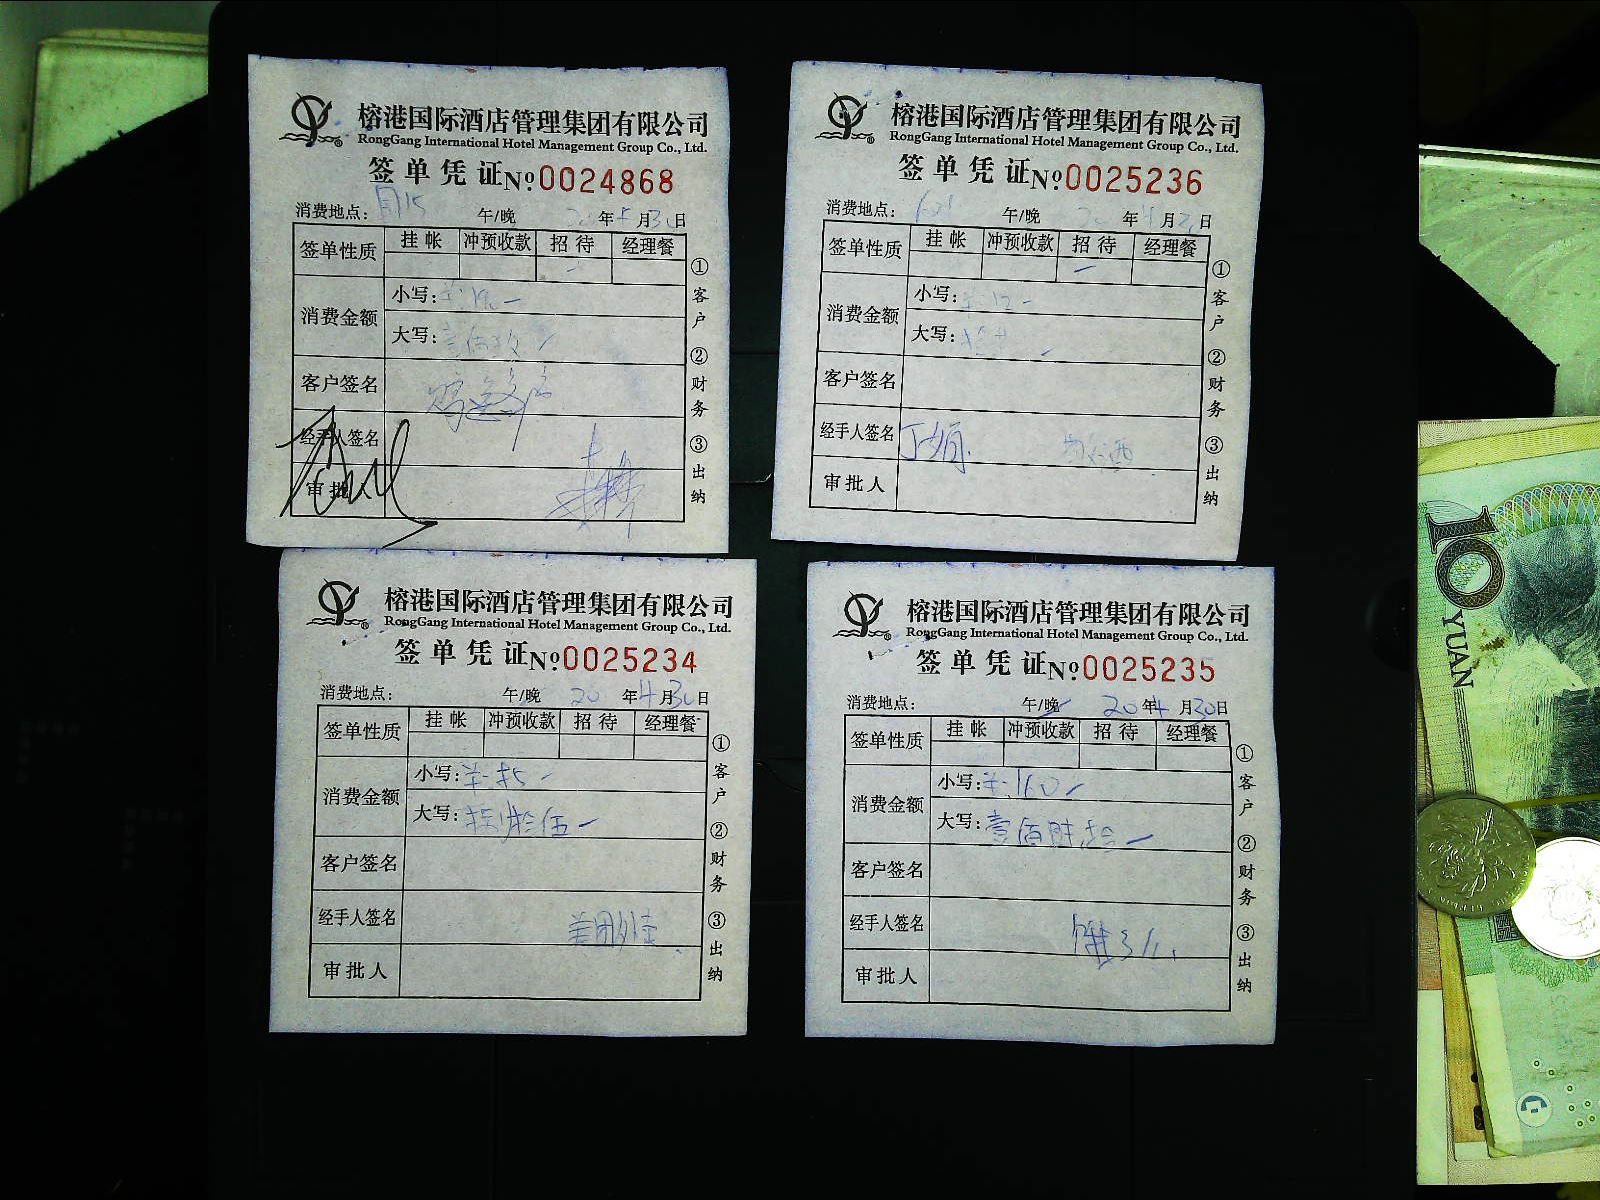 榕港国际酒店管理集团有限公司
RongGang International Hotel Management Group Co., Ltd.
签单凭证 №0024868
消费地点： 午/晚 20年 月30日
签单性质 挂帐 冲预收款 招待 经理餐
消费金额 小写：
大写：
客户签名
经手人签名
审批人
①客户 ②财务 ③出纳
榕港国际酒店管理集团有限公司
RongGang International Hotel Management Group Co., Ltd.
签单凭证 №0025236
消费地点： 午/晚 20年4月 日
签单性质 挂帐 冲预收款 招待 经理餐
消费金额 小写：
大写：
客户签名
经手人签名 丁娟
审批人
①客户 ②财务 ③出纳
榕港国际酒店管理集团有限公司
RongGang International Hotel Management Group Co., Ltd.
签单凭证 №0025234
消费地点： 午/晚 20年4月30日
签单性质 挂帐 冲预收款 招待 经理餐
消费金额 小写：
大写：
客户签名
经手人签名 美团外卖
审批人
①客户 ②财务 ③出纳
榕港国际酒店管理集团有限公司
RongGang International Hotel Management Group Co., Ltd.
签单凭证 №0025235
消费地点： 午/晚 20年4月30日
签单性质 挂帐 冲预收款 招待 经理餐
消费金额 小写：羊160
大写：壹佰陆拾
客户签名
经手人签名 饿了
审批人
①客户 ②财务 ③出纳
10
YUAN